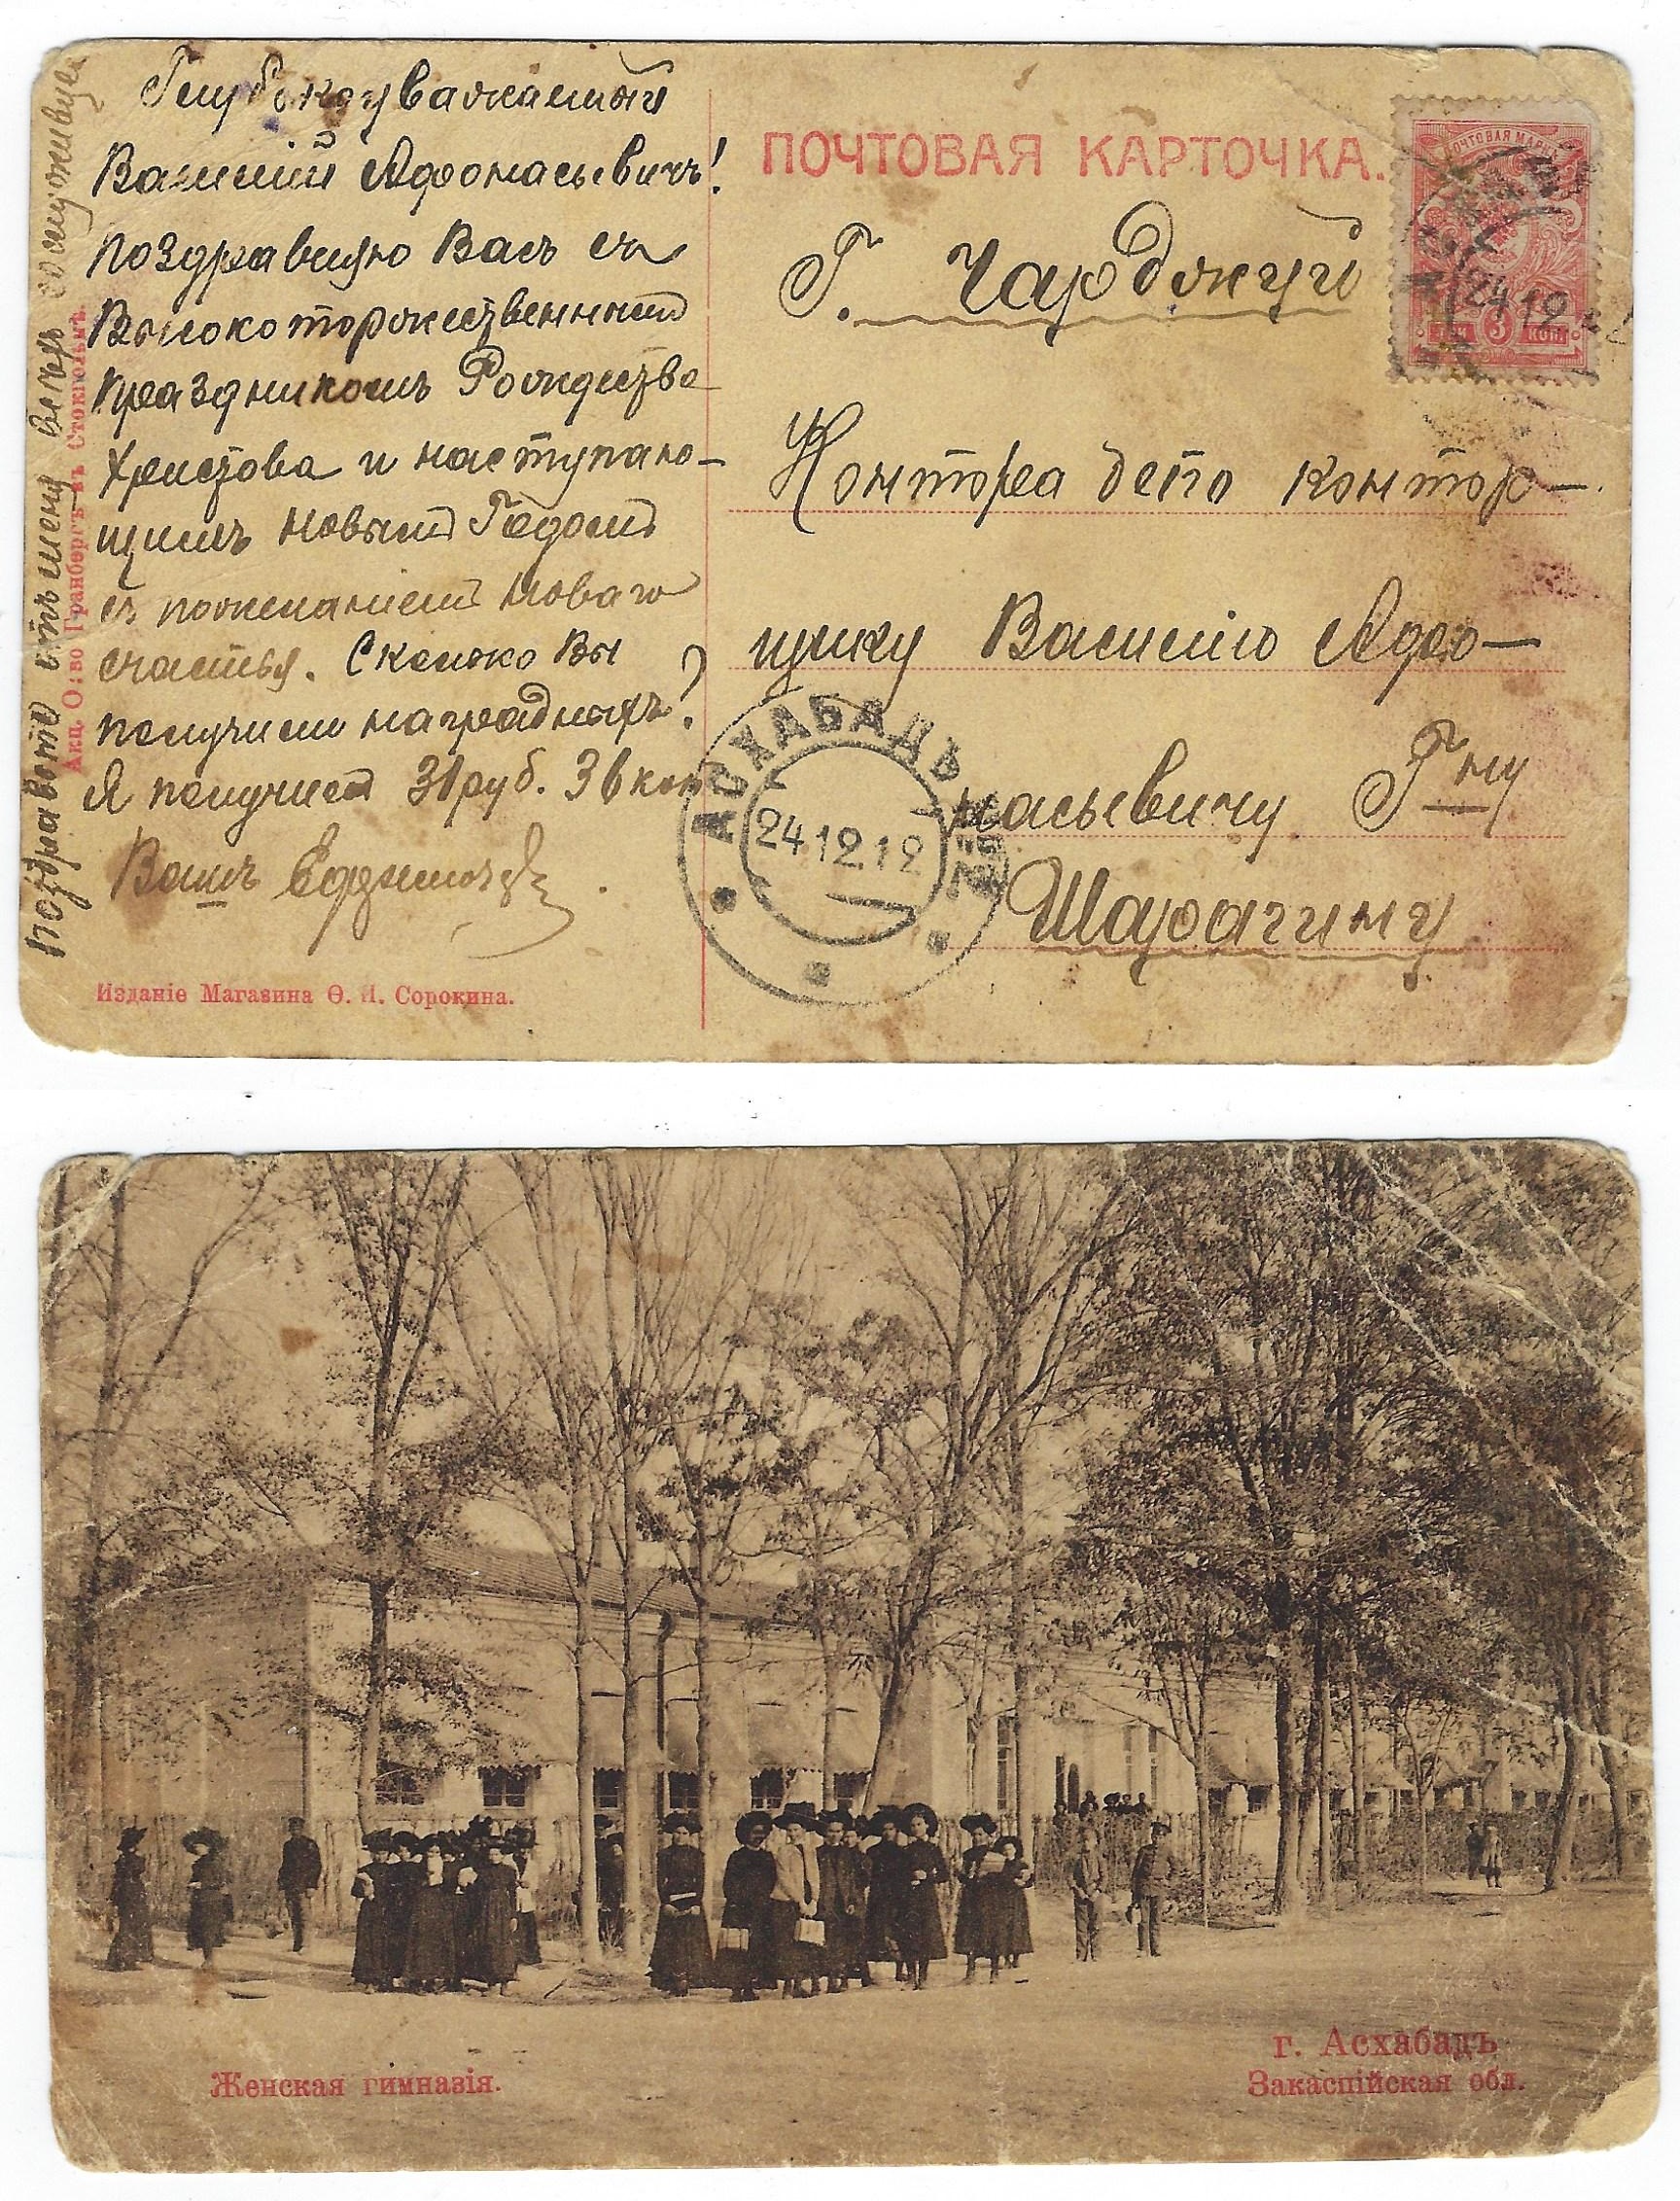 Глубокоуважаемый
Василій Афонасьевичъ!
Поздравляю Васъ съ
Высокоторжественнымъ
праздникомъ Рождества
Христова и наступаю-
щимъ Новымъ Годомъ
съ пожеланіемъ Новаго
счастья. Сколько Вы
получили наградныхъ?
Я получилъ 31 руб. 36 коп
Вашъ
Поздравьте отъ меня всехъ сослуживцев
Акц. О:во Гранбергъ въ Стокгольмѣ.
Изданіе Магазина Ѳ. И. Сорокина.
ПОЧТОВАЯ КАРТОЧКА.
ПОЧТОВАЯ МАРКА
ТРИ 3 КОП.
24 12 12
Г. Чарджуй
Контора депо контор-
щику Василію Афо-
насьевичу Г-ну
Шарагину
АСХАБАДЪ
24 12 12
Женская гимназія.
г. Асхабадъ
Закаспійская обл.